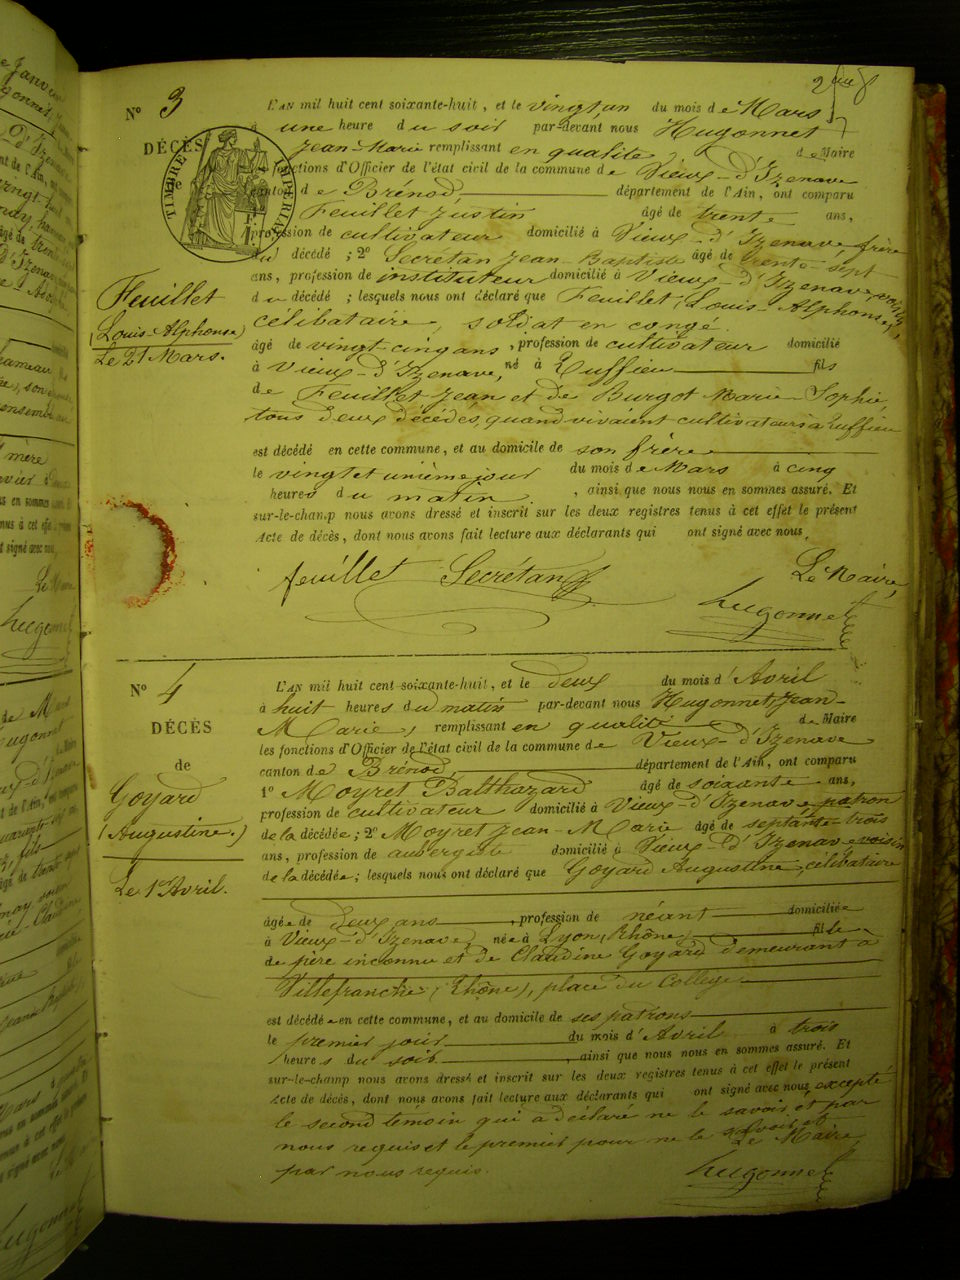 2me f
N° 3
L'AN mil huit cent soixante-huit, et le vingt un du mois de Mars
à une heure du soir par-devant nous Hugonnet
DÉCÈS
Jean-Marie remplissant en qualité de Maire
de
les fonctions d'Officier de l'état civil de la commune de Vieux-d'Izenave
TIMBRE IMPÉRIAL
canton de Brénod département de l'Ain, ont comparu
Feuillet Justin âgé de trente ans,
profession de cultivateur domicilié à Vieux-d'Izenave, frère
du décédé ; 2° Secretan Jean-Baptiste âgé de trente-sept
ans, profession de instituteur domicilié à Vieux-d'Izenave, voisin
du décédé ; lesquels nous ont déclaré que Feuillet Louis-Alphonse,
Feuillet
Louis-Alphonse)
Le 21 Mars.
célibataire, soldat en congé.
âgé de vingt-cinq ans, profession de cultivateur domicilié
à Vieux-d'Izenave, né à Ruffieu fils
de Feuillet Jean et de Burgot Marie-Sophie,
tous deux décédés, quand vivaient cultivateurs à Ruffieu
est décédé en cette commune, et au domicile de son frère
le vingt et unième jour du mois de Mars à cinq
heures du matin, ainsi que nous nous en sommes assuré. Et
sur-le-champ nous avons dressé et inscrit sur les deux registres tenus à cet effet le présent
Acte de décès, dont nous avons fait lecture aux déclarants qui ont signé avec nous,
feuillet Secretan Le Maire,
hugonnet
N° 4
L'AN mil huit cent soixante-huit, et le deux du mois d'Avril
à huit heures du matin par-devant nous Hugonnet, Jean-
DÉCÈS
Marie, remplissant en qualité de Maire
les fonctions d'Officier de l'état civil de la commune de Vieux-d'Izenave
de
canton de Brénod, département de l'Ain, ont comparu
Goyard
(Augustine.)
Le 1er Avril.
1° Moyret Balthazard âgé de soixante ans,
profession de cultivateur domicilié à Vieux-d'Izenave patron
de la décédée; 2° Moyret Jean-Marie âgé de septante-trois
ans, profession de aubergiste domicilié à Vieux-d'Izenave voisin
de la décédée; lesquels nous ont déclaré que Goyard Augustine, célibataire
âgée de deux ans, profession de néant domiciliée
à Vieux-d'Izenave, née à Lyon, Rhône) fille
de père inconnu et de Claudine Goyard demeurant à
Villefranche (Rhône), place du College
est décédée en cette commune, et au domicile de ses patrons
le premier jour du mois d'Avril à trois
heures du soir, ainsi que nous nous en sommes assuré. Et
sur-le-champ nous avons dressé et inscrit sur les deux registres tenus à cet effet le présent
Acte de décès, dont nous avons fait lecture aux déclarants qui ont signé avec nous, excepté
le second témoin qui a déclaré ne le savoir et par
nous requis et le premier pour ne le savoir et
par nous requis. Le Maire,
hugonnet